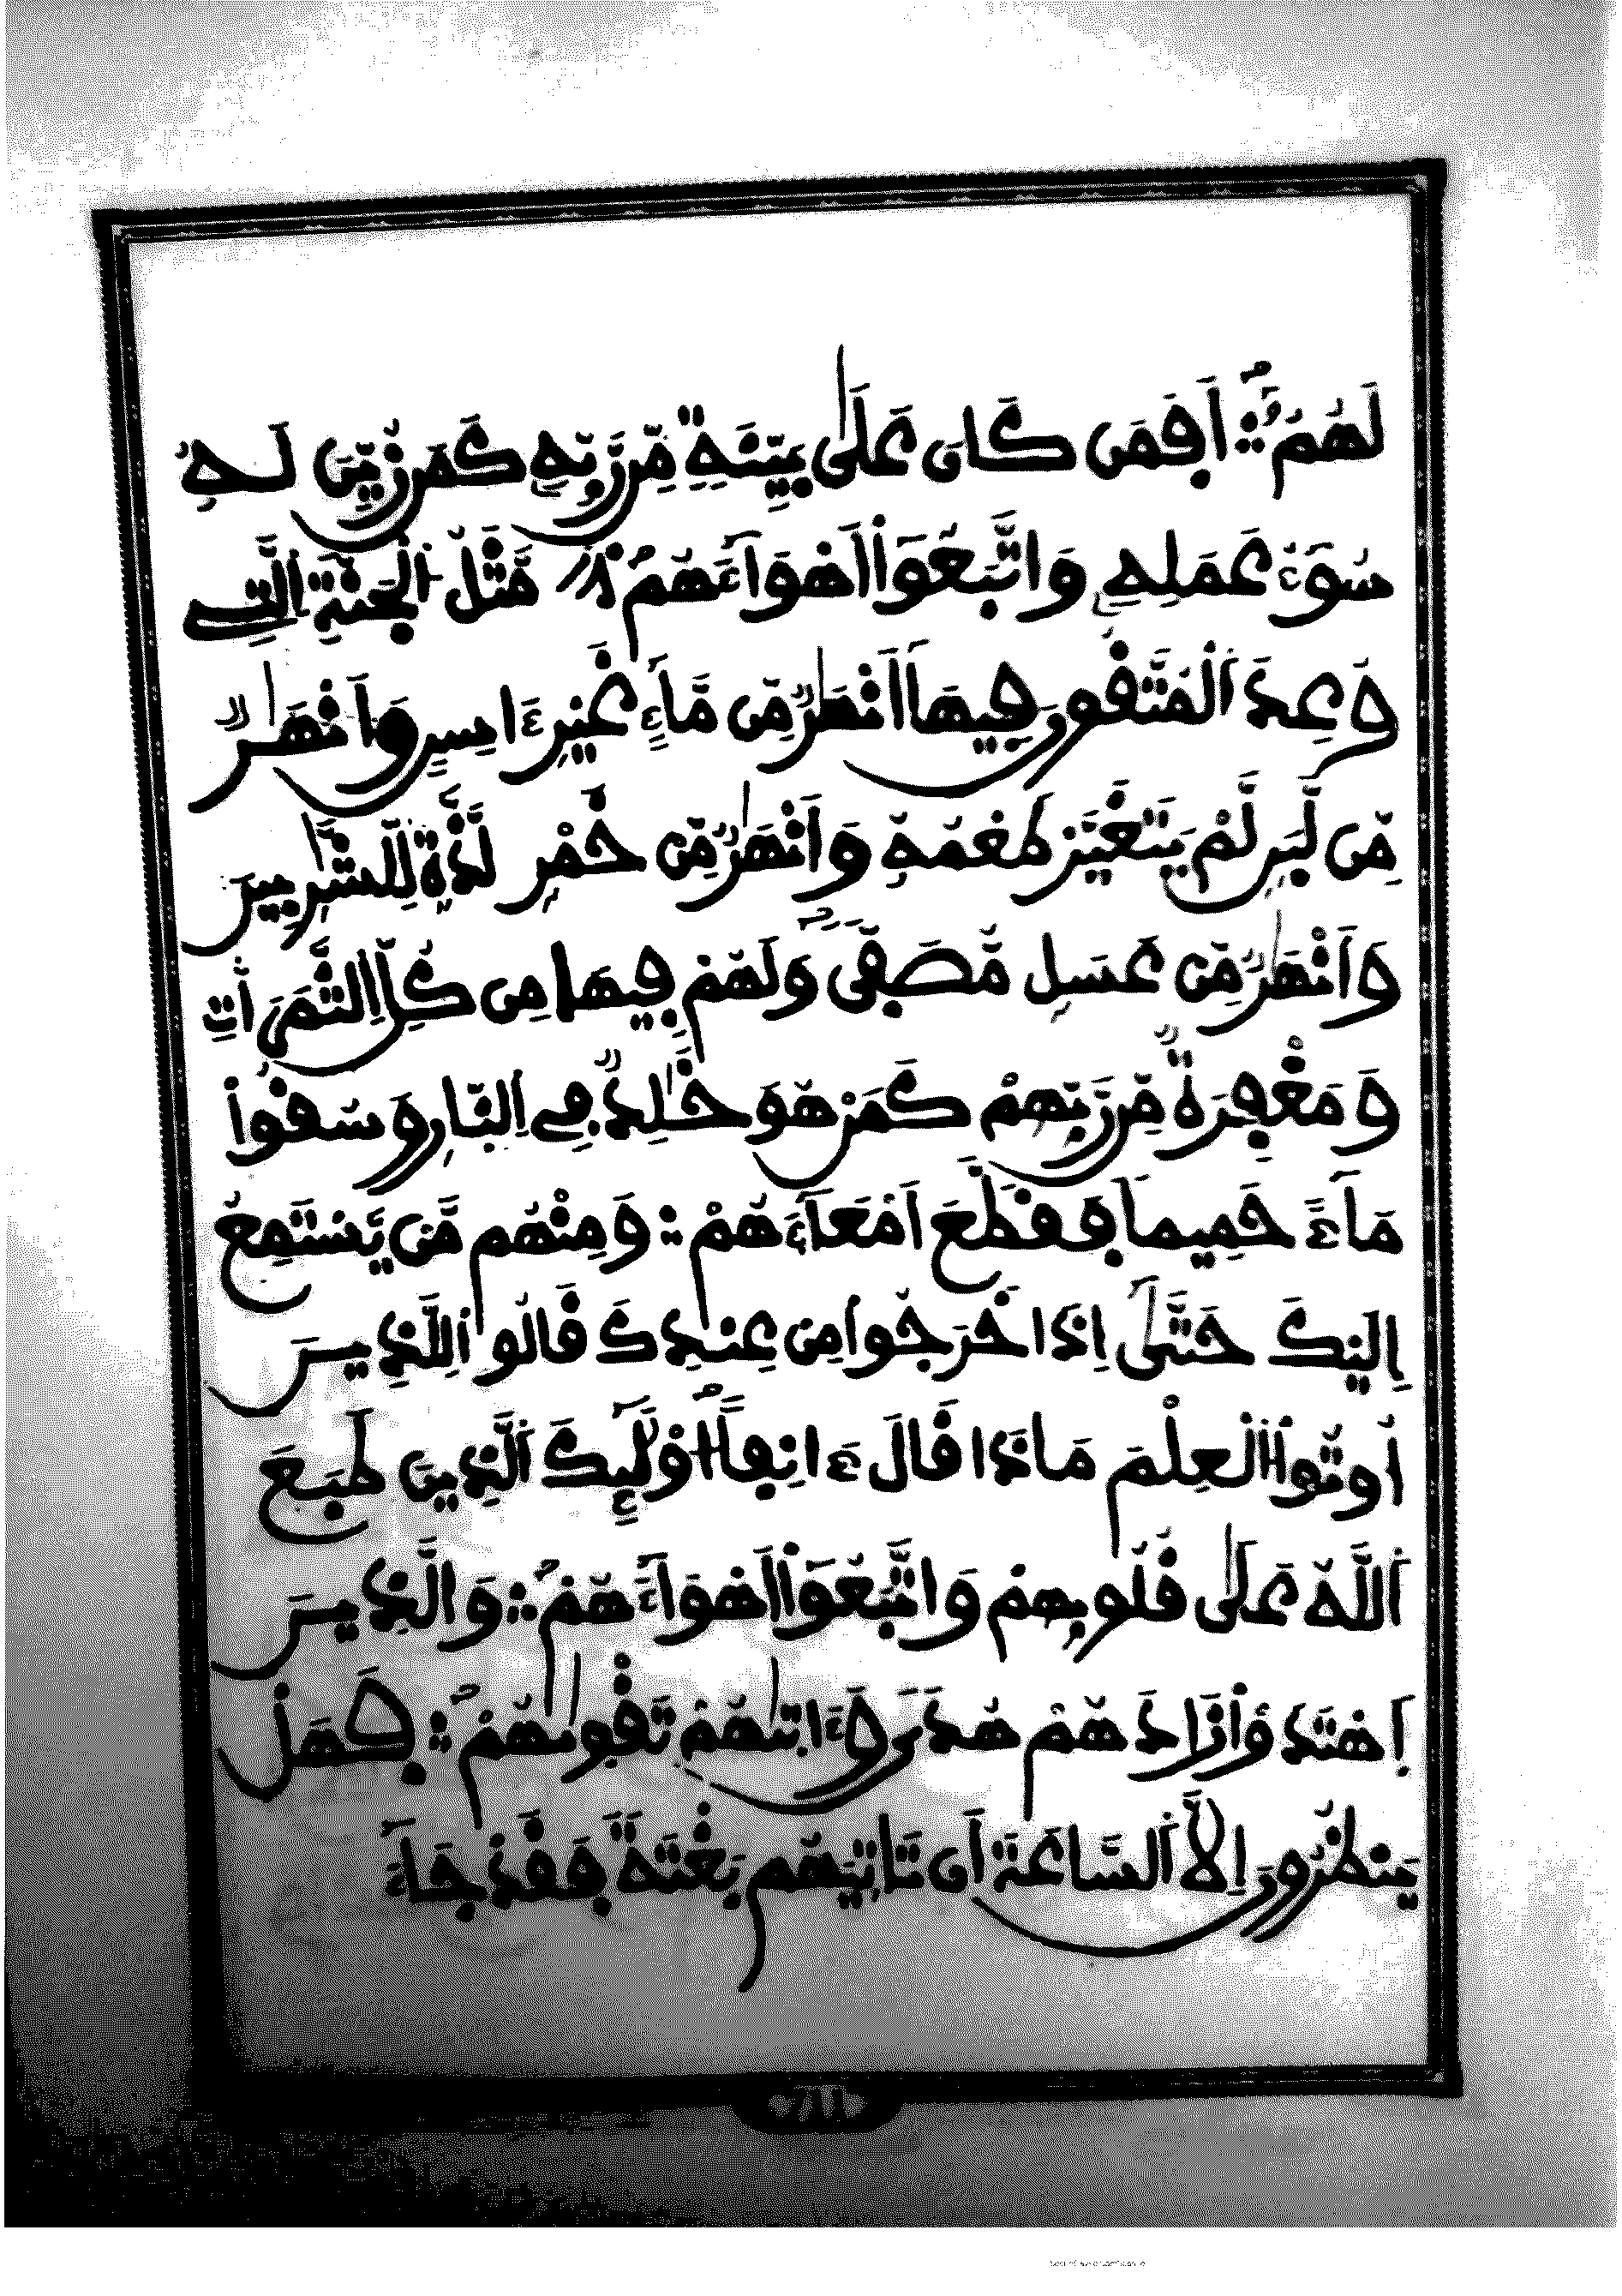 لَهُمُۥٓ أَفَمَن كَانَ عَلَىٰ بَيِّنَةٍ مِّن رَّبِّهِۦ كَمَن زُيِّنَ لَهُۥ
سُوٓءُ عَمَلِهِۦ وَاتَّبَعُوٓاْ أَهْوَآءَهُم مَّثَلُ اَ۬لْجَنَّةِ اِ۬لتِے
وُعِدَ اَ۬لْمُتَّقُونَ فِيهَآ أَنْهَٰرٌ مِّن مَّآءٍ غَيْرِ ءَاسِنٍ وَأَنْهَٰرٌ
مِّن لَّبَنٍ لَّمْ يَتَغَيَّرْ طَعْمُهُۥ وَأَنْهَٰرٌ مِّنْ خَمْرٍ لَّذَّةٍ لِّلشَّٰرِبِينَ
وَأَنْهَٰرٌ مِّنْ عَسَلٍ مُّصَفّيٗ وَلَهُمْ فِيهَا مِن كُلِّ اِ۬لثَّمَرَٰتِ
وَمَغْفِرَةٌ مِّن رَّبِّهِمْ كَمَنْ هُوَ خَٰلِدٌ فِے اِ۬لنّ۪ارِ وَسُقُواْ
مَآءً حَمِيماً فَقَطَّعَ أَمْعَآءَهُمْ وَمِنْهُم مَّنْ يَّسْتَمِعُ
إِلَيْكَ حَتَّىٰٓ إِذَا خَرَجُواْ مِنْ عِندِكَ قَالُواْ لِلذِينَ
أُوتُواْ اُ۬لْعِلْمَ مَاذَا قَالَ ءَانِفاً ا۟وْلَٰٓئِكَ اَ۬لذِينَ طَبَعَ
اَ۬للَّهُ عَلَىٰ قُلُوبِهِمْ وَاتَّبَعُوٓاْ أَهْوَآءَهُمْ وَالذِينَ
اَ۪هْتَدَوْاْ زَادَهُمْ هُديٗ وَءَات۪يٰهُمْ تَقْو۪يٰهُمْ فَهَلْ
يَنظُرُونَ إِلاَّ اَ۬لسَّاعَةَ أَن تَاتِيَهُم بَغْتَةً فَقَدْ جَآءَ
711